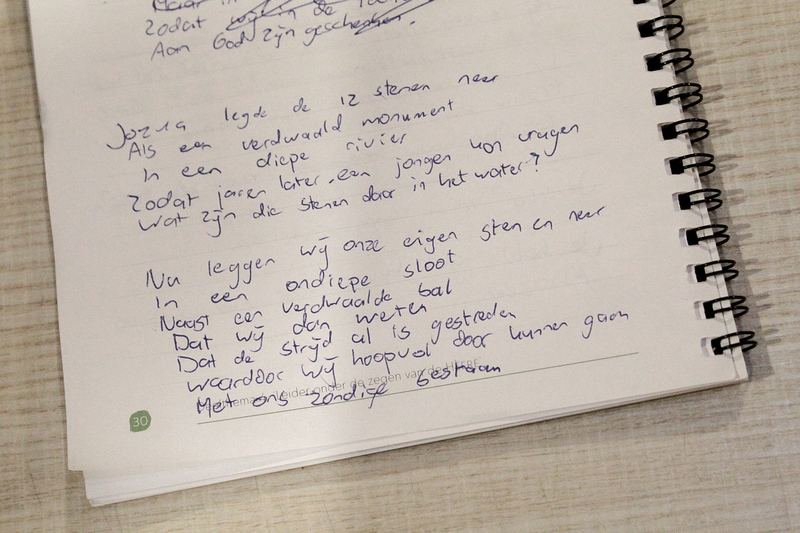 Maar in
Zodat wij in de
Aan God zijn geschenken.
Jozua legde de 12 stenen neer
Als een verdwaald monument
In een diepe rivier
Zodat jaren later een jongen kon vragen
Wat zijn die stenen daar in het water?
Nu leggen wij onze eigen stenen neer
In een ondiepe sloot
Naast een verdwaalde bal
Dat wij dan weten
Dat de strijd al is gestreden
waardoor wij hoopvol door kunnen gaan
Met ons zondige bestaan
leider onder de zegen van de HEERE
30